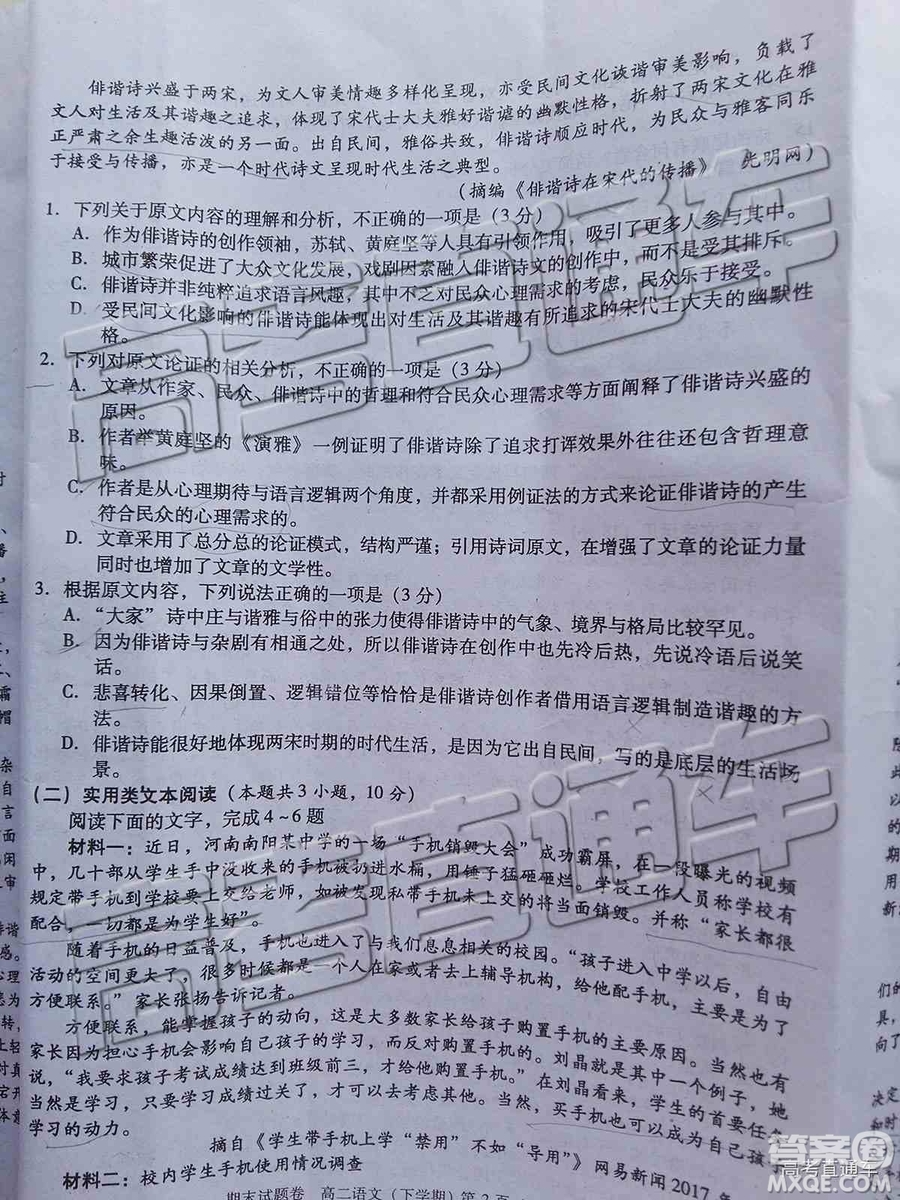 俳谐诗兴盛于两宋，为文人审美情趣多样化呈现，亦受民间文化诙谐审美影响，负载了
文人对生活及其谐趣之追求，体现了宋代士大夫雅好谐谑的幽默性格，折射了两宋文化在雅
正严肃之余生趣活泼的另一面。出自民间，雅俗共致，俳谐诗顺应时代，为民众与雅客同乐
于接受与传播，亦是一个时代诗文呈现时代生活之典型。
（摘编《俳谐诗在宋代的传播》 光明网）
1. 下列关于原文内容的理解和分析，不正确的一项是（3分）
A. 作为俳谐诗的创作领袖，苏轼、黄庭坚等人具有引领作用，吸引了更多人参与其中。
B. 城市繁荣促进了大众文化发展，戏剧因素融入俳谐诗文的创作中，而不是受其排斥。
C. 俳谐诗并非纯粹追求语言风趣，其中不乏对民众心理需求的考虑，民众乐于接受。
D. 受民间文化影响的俳谐诗能体现出对生活及其谐趣有所追求的宋代士大夫的幽默性
格。
2. 下列对原文论证的相关分析，不正确的一项是（3分）
A. 文章从作家、民众、俳谐诗中的哲理和符合民众心理需求等方面阐释了俳谐诗兴盛的
原因。
B. 作者举黄庭坚的《演雅》一例证明了俳谐诗除了追求打诨效果外往往还包含哲理意
味。
C. 作者是从心理期待与语言逻辑两个角度，并都采用例证法的方式来论证俳谐诗的产生
符合民众的心理需求的。
D. 文章采用了总分总的论证模式，结构严谨；引用诗词原文，在增强了文章的论证力量
同时也增加了文章的文学性。
3. 根据原文内容，下列说法正确的一项是（3分）
A. “大家”诗中庄与谐雅与俗中的张力使得俳谐诗中的气象、境界与格局比较罕见。
B. 因为俳谐诗与杂剧有相通之处，所以俳谐诗在创作中也先冷后热，先说冷语后说笑
话。
C. 悲喜转化、因果倒置、逻辑错位等恰恰是俳谐诗创作者借用语言逻辑制造谐趣的方
法。
D. 俳谐诗能很好地体现两宋时期的时代生活，是因为它出自民间，写的是底层的生活场
景。
（二）实用类文本阅读（本题共3小题，10分）
阅读下面的文字，完成4～6题
材料一：近日，河南南阳某中学的一场“手机销毁大会”成功霸屏，在一段曝光的视频
中，几十部从学生手中没收来的手机被扔进水桶，用锤子猛砸砸烂。学校工作人员称学校有
规定带手机到学校要上交给老师，如被发现私带手机未上交的将当面销毁。并称“家长都很
配合，一切都是为学生好”。
随着手机的日益普及，手机也进入了与我们息息相关的校园。“孩子进入中学以后，自由
活动的空间更大了，很多时候都是一个人在家或者去上辅导机构，给他配手机，主要是为了
方便联系。”家长张扬告诉记者。
方便联系，能掌握孩子的动向，这是大多数家长给孩子购置手机的主要原因。当然，也有
家长因为担心手机会影响自己孩子的学习，而反对购置手机的。刘晶就是其中的一个例子，她
说，“我要求孩子考试成绩达到班级前三，才给他买手机。”在刘晶看来，学生的首要任务
当然是学习，只要学习成绩过关了，才可以去接触其他。当然，买手机也可以成为自己孩子
学习的动力。
摘自《学生带手机上学“禁用”不如“导用”》网易新闻2017年
材料二：校内学生手机使用情况调查
期末试题卷 高二语文（下学期）第2页
高考直通车
高考直通车
答案圈
MXQE.COM
高考直通车